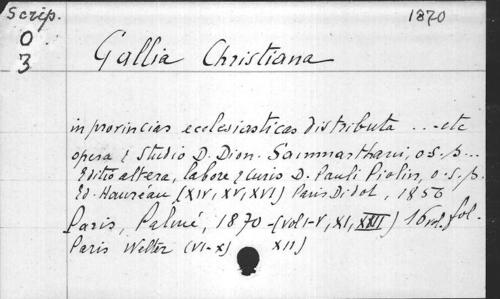 Scrip.
1870
O
3
Gallia Christiana
in provincias ecclesiasticas distributa ... etc
opera & studio D. Dion. Sammarthani, o.s.b...
Editio altera, labore & curis D. Pauli Piolin, o.s.b.
Ed. Hauréau (XIV, XV, XVI) Paris Didot, 1856
Paris, Palmé, 1870 - (vol I-V, XI, XIII) 16 vol. fol.
Paris Welter (VI-X) XII)